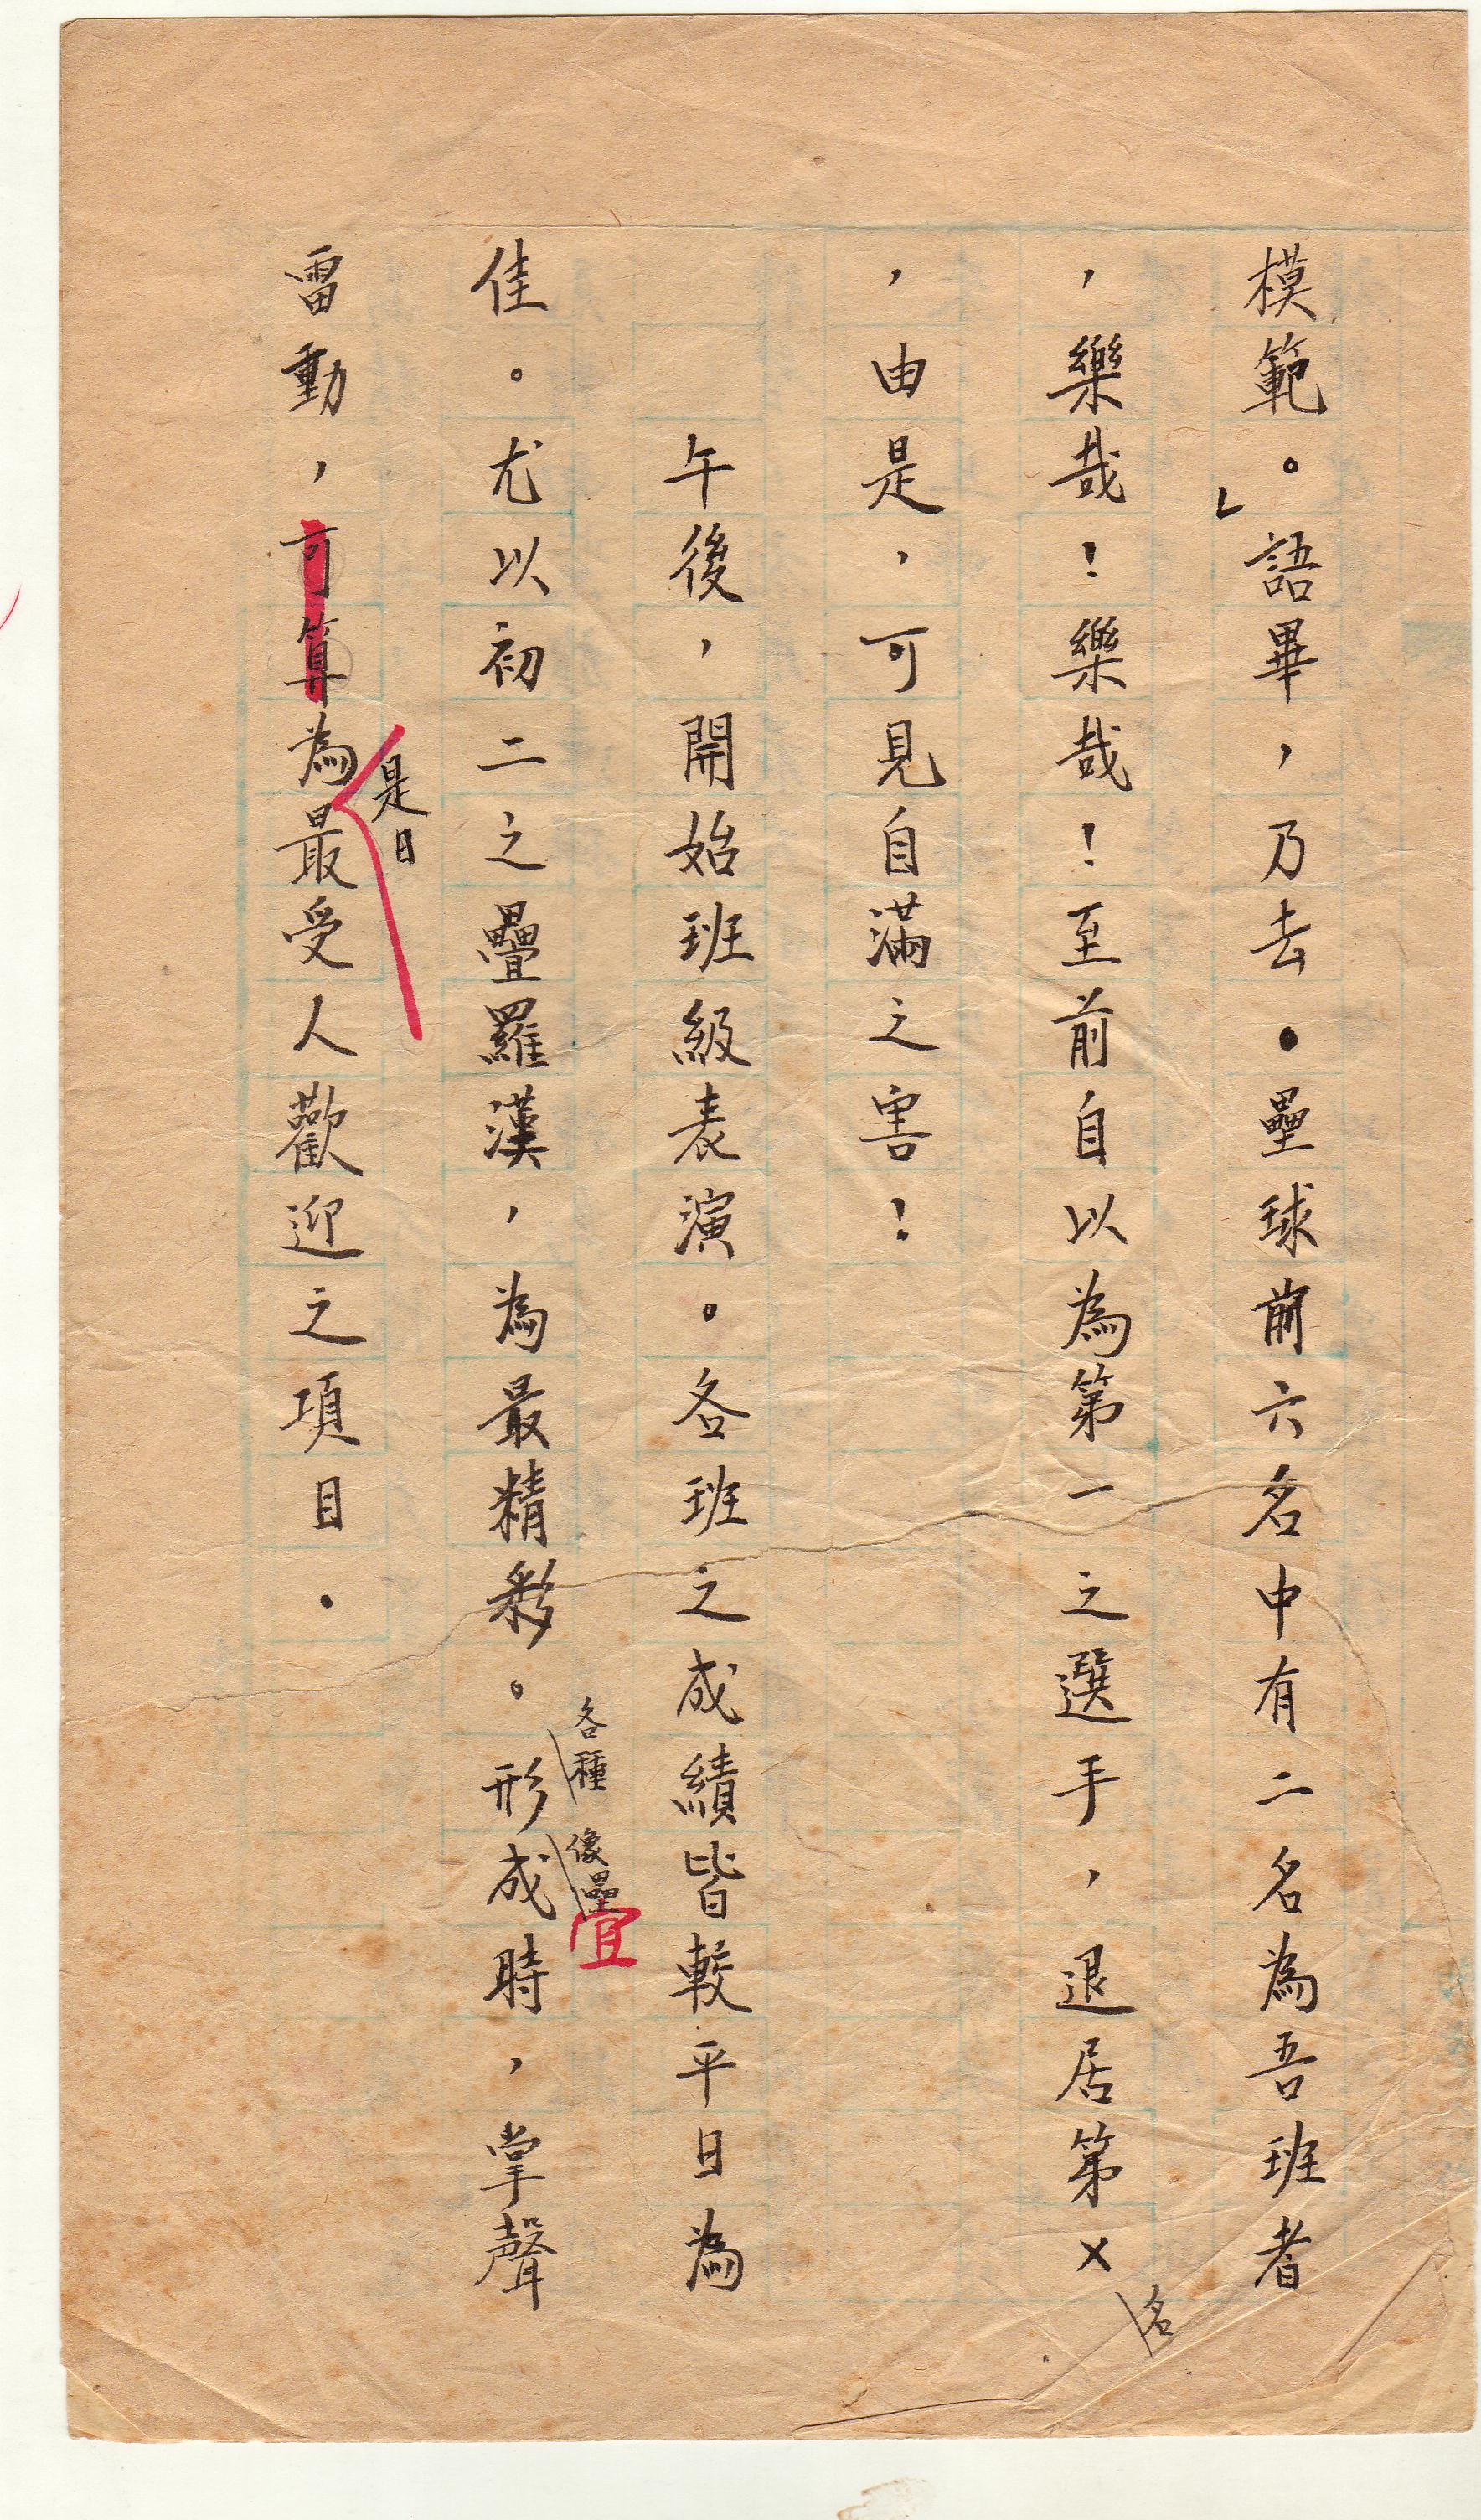 模範。」語畢，乃去．壘球前六名中有二名為吾班者
，樂哉！樂哉！至前自以為第一之選手，退居第×名
，由是，可見自滿之害！
午後，開始班級表演。各班之成績皆較平日為
佳。尤以初二之疊羅漢，為最精彩。各種形像疊成時，掌聲
雷動，可算為是日最受人歡迎之項目．